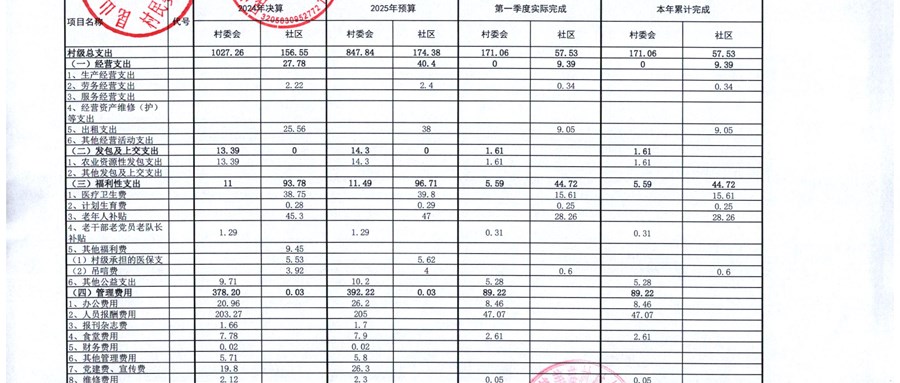 2024年决算 2025年预算 第一季度实际完成 本年累计完成
项目名称 代号
村委会 社区 村委会 社区 村委会 社区 村委会 社区
村级总支出 1027.26 156.55 847.84 174.38 171.06 57.53 171.06 57.53
（一）经营支出 27.78 40.4 0 9.39 0 9.39
1、生产经营支出
2、劳务经营支出 2.22 2.4 0.34 0.34
3、服务经营支出
4、经营资产维修（护）
等支出
5、出租支出 25.56 38 9.05 9.05
6、其他经营活动支出
（二）发包及上交支出 13.39 0 14.3 0 1.61 1.61
1、农业资源性发包支出 13.39 14.3 1.61 1.61
2、其他发包及上交支出
（三）福利性支出 11 93.78 11.49 96.71 5.59 44.72 5.59 44.72
1、医疗卫生费 38.75 39.8 15.61 15.61
2、计划生育费 0.28 0.29 0.25 0.25
3、老年人补贴 45.3 47 28.26 28.26
4、老干部老党员老队长
补贴 1.29 1.29 0.31 0.31
5、其他福利费 9.45
（1）村级承担的医保支 5.53 5.62
（2）吊唁费 3.92 4 0.6 0.6
6、其他公益支出 9.71 10.2 5.28 5.28
（四）管理费用 378.20 0.03 392.22 0.03 89.22 89.22
1、办公费用 20.96 26.2 8.46 8.46
2、人员报酬费用 203.27 205 47.07 47.07
3、报刊杂志费 1.66 1.7
4、食堂费用 7.78 7.9 2.61 2.61
5、财务费用 0.02 0.02
6、其他管理费用 5.71 5.8
7、党建费、宣传费 19.8 26.3
8、维修费用 2.12 2.3 0.05 0.05